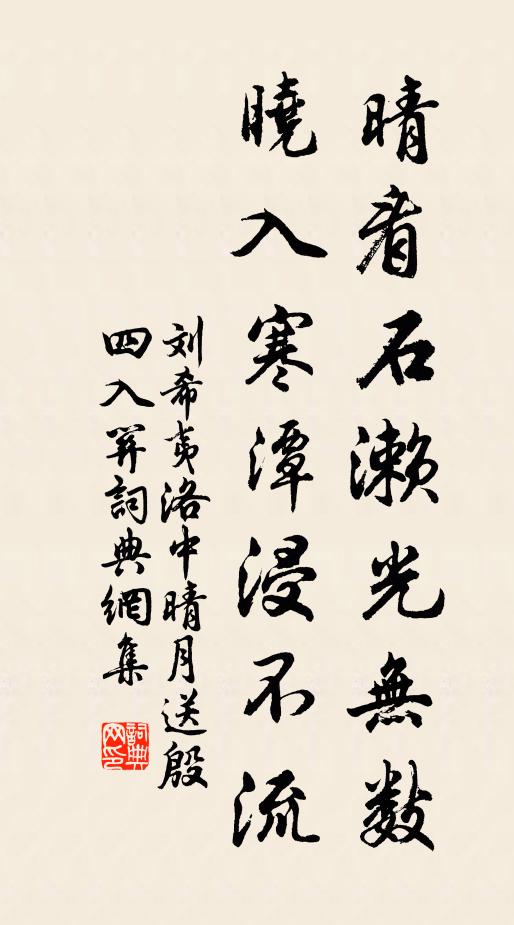 晴看石濑光無數
曉入寒潭浸不流
刘希夷洛中晴月送殷
四入關詞典網集
詞典
网印